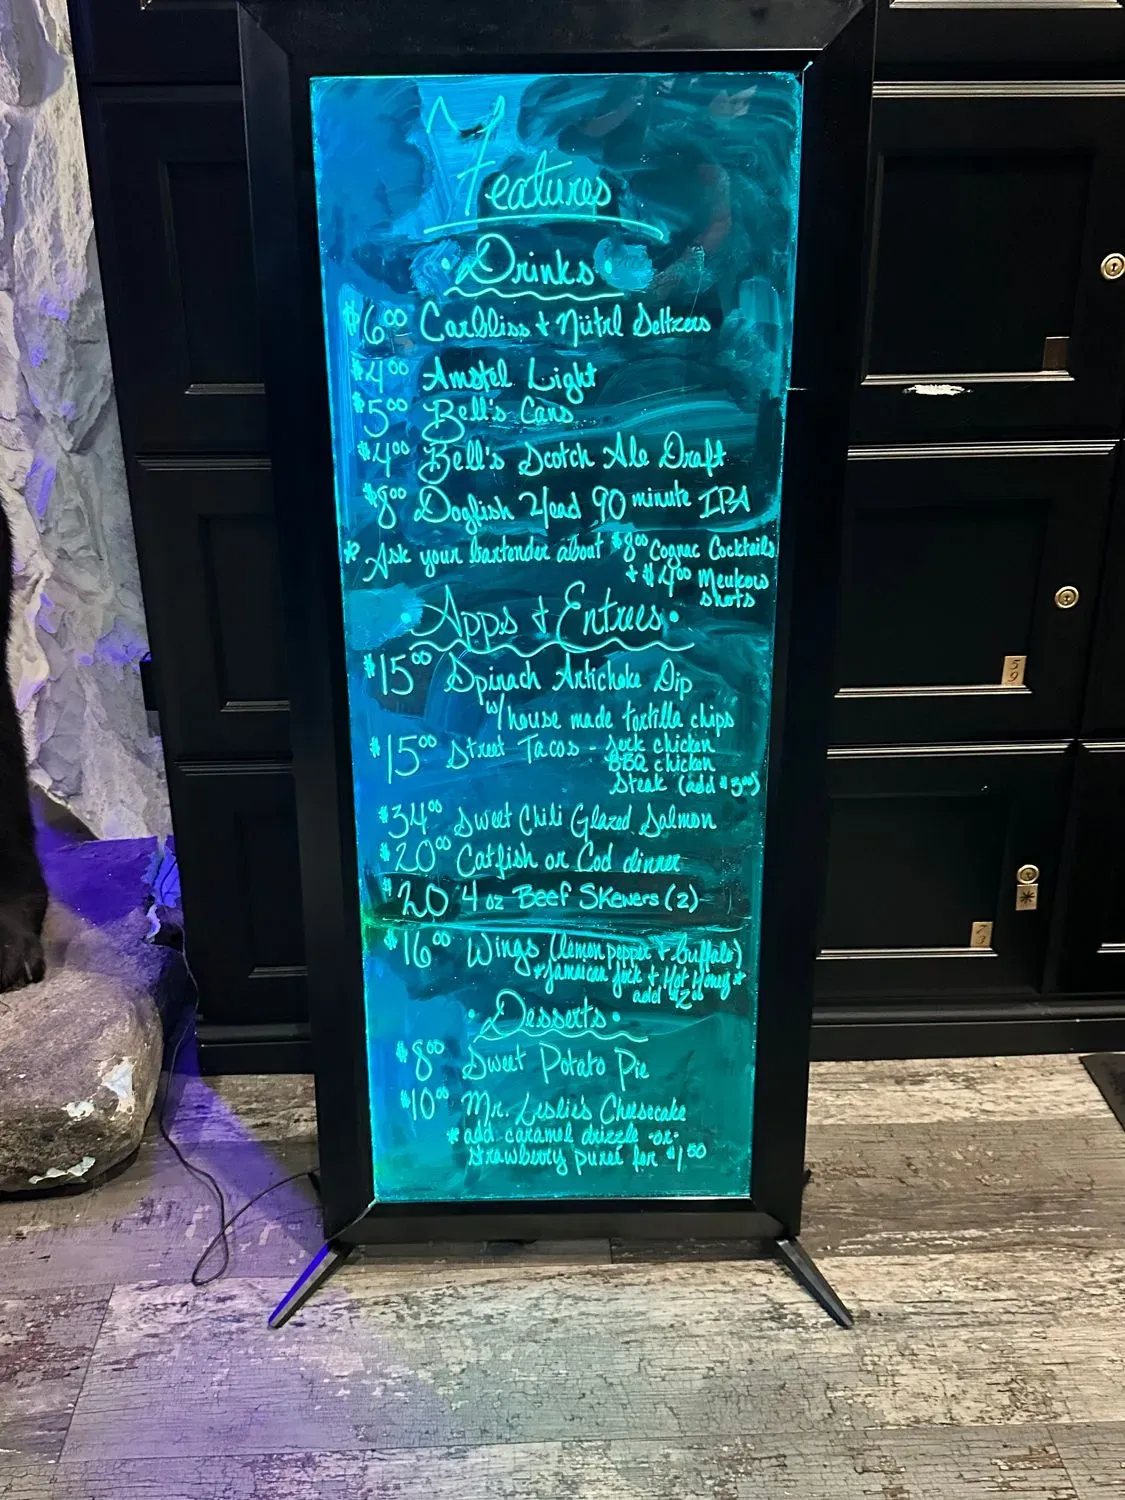 Features
• Drinks •
$6.00 Carbliss + Nütrl Seltzers
$4.00 Amstel Light
$5.00 Bell's Cans
$4.00 Bell's Scotch Ale Draft
$8.00 Dogfish Head 90 minute IPA
* Ask your bartender about $8.00 Cognac Cocktails
+ $4.00 Meukow
shots
• Apps + Entrees •
$15.00 Spinach Artichoke Dip
w/house made tortilla chips
$15.00 Street Tacos - Jerk chicken
BBQ chicken
Steak (add $3.00)
$34.00 Sweet Chili Glazed Salmon
$20.00 Catfish or Cod dinner
$20 4 oz Beef Skewers (2)
$16.00 Wings (lemon pepper + buffalo)
*Jamaican Jerk + Hot Honey*
add $2.00
• Desserts •
$8.00 Sweet Potato Pie
$10.00 Mr. Leslie's Cheesecake
* add caramel drizzle -or-
strawberry pureé for $1.50
59
73